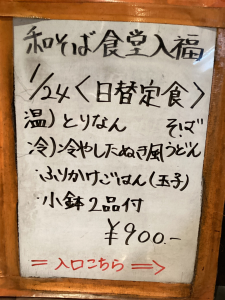 和そば食堂入福
1/24<日替定食>
温)とりなん そば
冷)冷やしたぬき風うどん
・ふりかけごはん(玉子)
・小鉢2品付
￥900.-
=入口こちら=>